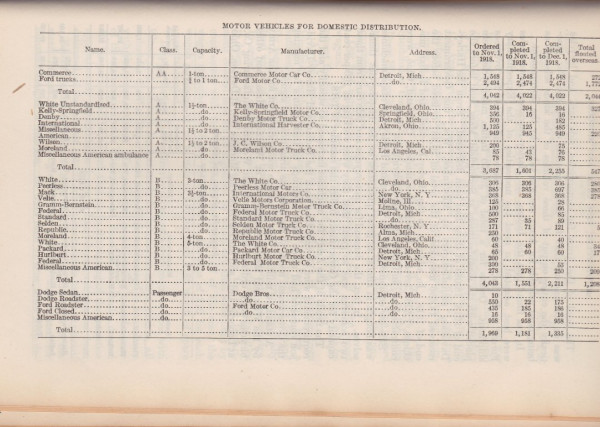 MOTOR VEHICLES FOR DOMESTIC DISTRIBUTION.
Name. Class. Capacity. Manufacturer. Address. Ordered to Nov. 1, 1918. Completed to Nov. 1, 1918. Completed to Dec. 1, 1918. Total floated overseas.
Commerce AA 1-ton Commerce Motor Car Co. Detroit, Mich 1,548 1,548 1,548 272
Ford trucks do. Ford Motor Co. do. 2,494 2,474 2,474 1,772
Total 4,042 4,022 4,022 2,044
White Unstandardized A 1½-ton The White Co. Cleveland, Ohio. 394 394 394
Kelly-Springfield A do. Kelly-Springfield Motor Co. Springfield, Ohio. 156 16 16
Denby A do. Denby Motor Truck Co. Detroit, Mich 500 182
International A do. International Harvester Co. Akron, Ohio. 1,125 125 485
Miscellaneous American A 1½ to 2 ton 949 945 949
Wilson A 1½ to 2 ton J. C. Wilson Co. Detroit, Mich 200 75
Moreland A do. Moreland Motor Truck Co. Los Angeles, Cal. 85 43 76
Miscellaneous American ambulance A do. 78 78 78
Total 3,687 1,601 2,255 547
White B 3-ton The White Co. Cleveland, Ohio. 306 306 306
Peerless B do. Peerless Motor Car do.
Mack B International Motors Co. New York, N. Y 368 368 368
Velie B do. Velie Motors Corporation. Moline, Ill 125 28
Gramm-Bernstein B do. Gramm-Bernstein Motor Truck Co. Lima, Ohio. 100 66
Federal B do. Federal Motor Truck Co. Detroit, Mich 500 85
Standard B do. Standard Motor Truck Co. do. 287 35 89
Selden B do. Selden Motor Truck Co. Rochester, N. Y 171 71 121
Republic B do. Republic Motor Truck Co. Alma, Mich 250
Moreland B 4-ton Moreland Motor Truck Co. Los Angeles, Calif 60 40
White B 5-ton The White Co. Cleveland, Ohio. 48 48 48
Packard B do. Packard Motor Car Co. Detroit, Mich 60 60 60
Hurlburt B do. Hurlburt Motor Truck Co. New York, N. Y 200
Federal B do. Federal Motor Truck Co. Detroit, Mich
Miscellaneous American B 3 to 5 ton 278 278 250
Total 4,043 1,551 2,211
Dodge Sedan Passenger Dodge Bros. Detroit, Mich 10
Dodge Roadster do. do. do. 550 22 175
Ford Roadster do. Ford Motor Co. do. 435 185 186
Ford Closed do. do. do. 16 16 16
Miscellaneous American do. 958 958 958
Total 1,969 1,181 1,335